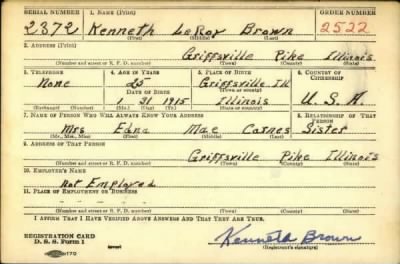 SERIAL NUMBER 1. NAME (Print) ORDER NUMBER
2372 Kenneth LeRoy Brown 2522
(First) (Middle) (Last)
2. ADDRESS (Print)
Griffsville Pike Illinois
(Number and street or R. F. D. number) (Town) (County) (State)
3. TELEPHONE 4. AGE IN YEARS 5. PLACE OF BIRTH 6. COUNTRY OF CITIZENSHIP
None 25 Griffsville Ill
DATE OF BIRTH (Town or county)
1 21 1915 Illinois U. S. A.
(Exchange) (Number) (Mo.) (Day) (Yr.) (State or country)
7. NAME OF PERSON WHO WILL ALWAYS KNOW YOUR ADDRESS 8. RELATIONSHIP OF THAT PERSON
Mrs Edna Mae Carnes Sister
(Mr., Mrs., Miss) (First) (Middle) (Last)
9. ADDRESS OF THAT PERSON
Griffsville Pike Illinois
(Number and street or R. F. D. number) (Town) (County) (State)
10. EMPLOYER'S NAME
Not Employed
11. PLACE OF EMPLOYMENT OR BUSINESS
(Number and street or R. F. D. number) (Town) (County) (State)
I AFFIRM THAT I HAVE VERIFIED ABOVE ANSWERS AND THAT THEY ARE TRUE.
REGISTRATION CARD
D. S. S. Form 1 (over) Kenneth Brown
(Registrant's signature)